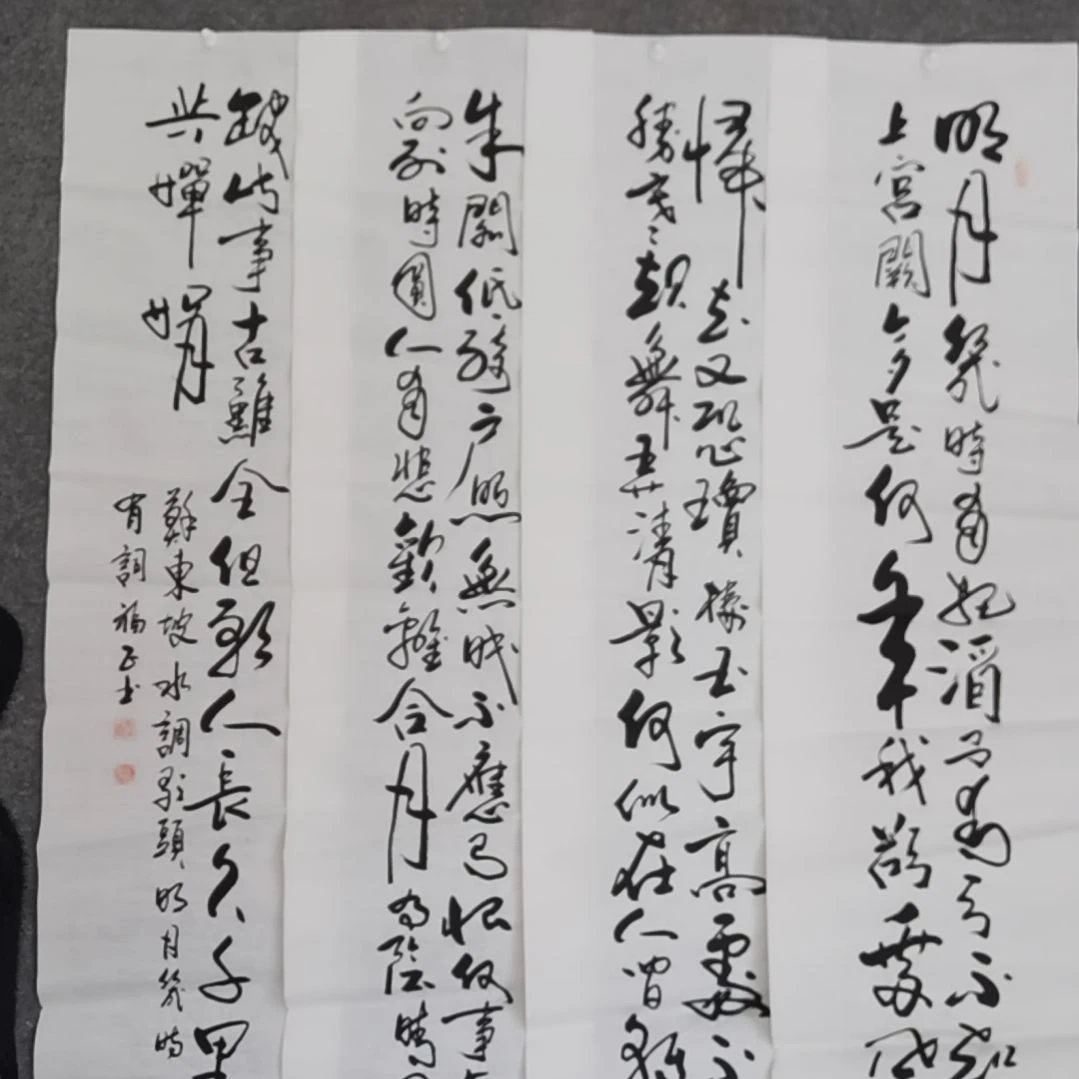 明月幾時有把酒問青天不知
上宮闕今夕是何年我欲乘風
歸去又恐瓊樓玉宇高處不
勝寒起舞弄清影何似在人間
朱閣低綺戶照無眠不應有恨何事
向別時圓人有悲歡離合月有陰晴
缺此事古難全但願人長久千里
共嬋娟
蘇東坡水調歌頭明月幾時
有詞